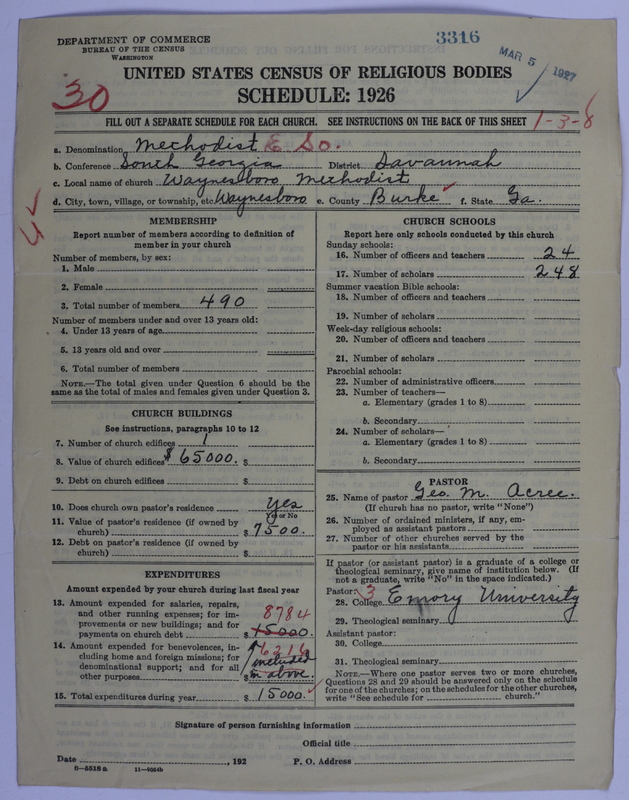 DEPARTMENT OF COMMERCE
BUREAU OF THE CENSUS
WASHINGTON
3316
MAR 5 1927
UNITED STATES CENSUS OF RELIGIOUS BODIES
SCHEDULE: 1926
30
FILL OUT A SEPARATE SCHEDULE FOR EACH CHURCH. SEE INSTRUCTIONS ON THE BACK OF THIS SHEET
1-3-8
a. Denomination Methodist E So.
b. Conference South Georgia District Savannah
c. Local name of church Waynesboro Methodist
d. City, town, village, or township, etc. Waynesboro e. County Burke f. State Ga.
MEMBERSHIP
Report number of members according to definition of
member in your church
Number of members, by sex:
1. Male
2. Female
3. Total number of members 490
Number of members under and over 13 years old:
4. Under 13 years of age
5. 13 years old and over
6. Total number of members
NOTE.—The total given under Question 6 should be the
same as the total of males and females given under Question 3.
CHURCH BUILDINGS
See instructions, paragraphs 10 to 12
7. Number of church edifices 1
8. Value of church edifices $65000. $
9. Debt on church edifices $
10. Does church own pastor's residence Yes
Yes or No
11. Value of pastor's residence (if owned by
church) $ 7500.
12. Debt on pastor's residence (if owned by
church) $
EXPENDITURES
Amount expended by your church during last fiscal year
13. Amount expended for salaries, repairs,
and other running expenses; for im-
provements or new buildings; and for
payments on church debt $ 15000.
8784
14. Amount expended for benevolences, in-
cluding home and foreign missions; for
denominational support; and for all
other purposes $
6216
included
in above.
15. Total expenditures during year $ 15000.
CHURCH SCHOOLS
Report here only schools conducted by this church
Sunday schools:
16. Number of officers and teachers 24
17. Number of scholars 248
Summer vacation Bible schools:
18. Number of officers and teachers
19. Number of scholars
Week-day religious schools:
20. Number of officers and teachers
21. Number of scholars
Parochial schools:
22. Number of administrative officers
23. Number of teachers—
a. Elementary (grades 1 to 8)
b. Secondary
24. Number of scholars—
a. Elementary (grades 1 to 8)
b. Secondary
PASTOR
25. Name of pastor Geo. M. Acree.
(If church has no pastor, write "None")
26. Number of ordained ministers, if any, em-
ployed as assistant pastors
27. Number of other churches served by the
pastor or his assistants
If pastor (or assistant pastor) is a graduate of a college or
theological seminary, give name of institution below. (If
not a graduate, write "No" in the space indicated.)
Pastor: 3
28. College Emory University
29. Theological seminary
Assistant pastor:
30. College
31. Theological seminary
NOTE.—Where one pastor serves two or more churches,
Questions 28 and 29 should be answered only on the schedule
for one of the churches; on the schedules for the other churches,
write "See schedule for church."
Signature of person furnishing information
Official title
Date , 192 P. O. Address
6—5518 a 11—9054b